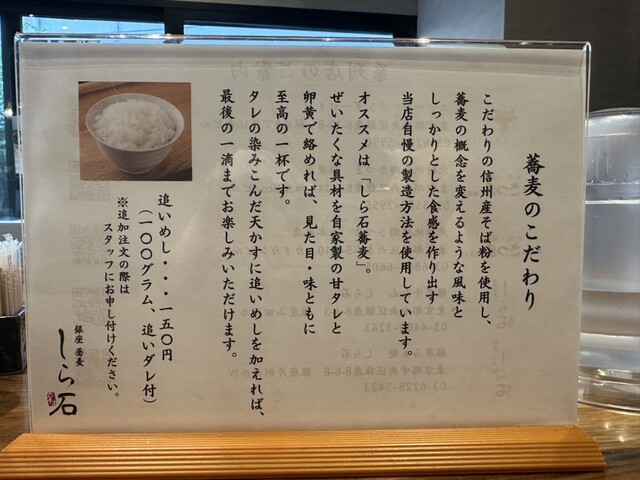 蕎麦のこだわり
こだわりの信州産そば粉を使用し、
蕎麦の概念を変えるような風味と
しっかりとした食感を作り出す
当店自慢の製造方法を使用しています。
オススメは「しら石蕎麦」。
ぜいたくな具材を自家製の甘タレと
卵黄で絡めれば、見た目・味ともに
至高の一杯です。
タレの染みこんだ天かすに追いめしを加えれば、
最後の一滴までお楽しみいただけます。
追いめし・・・一五〇円
（一〇〇グラム、追いダレ付）
※追加注文の際は
スタッフにお申し付けください。
銀座 蕎麦
しら石
系列店のご案内
03-6228-5423